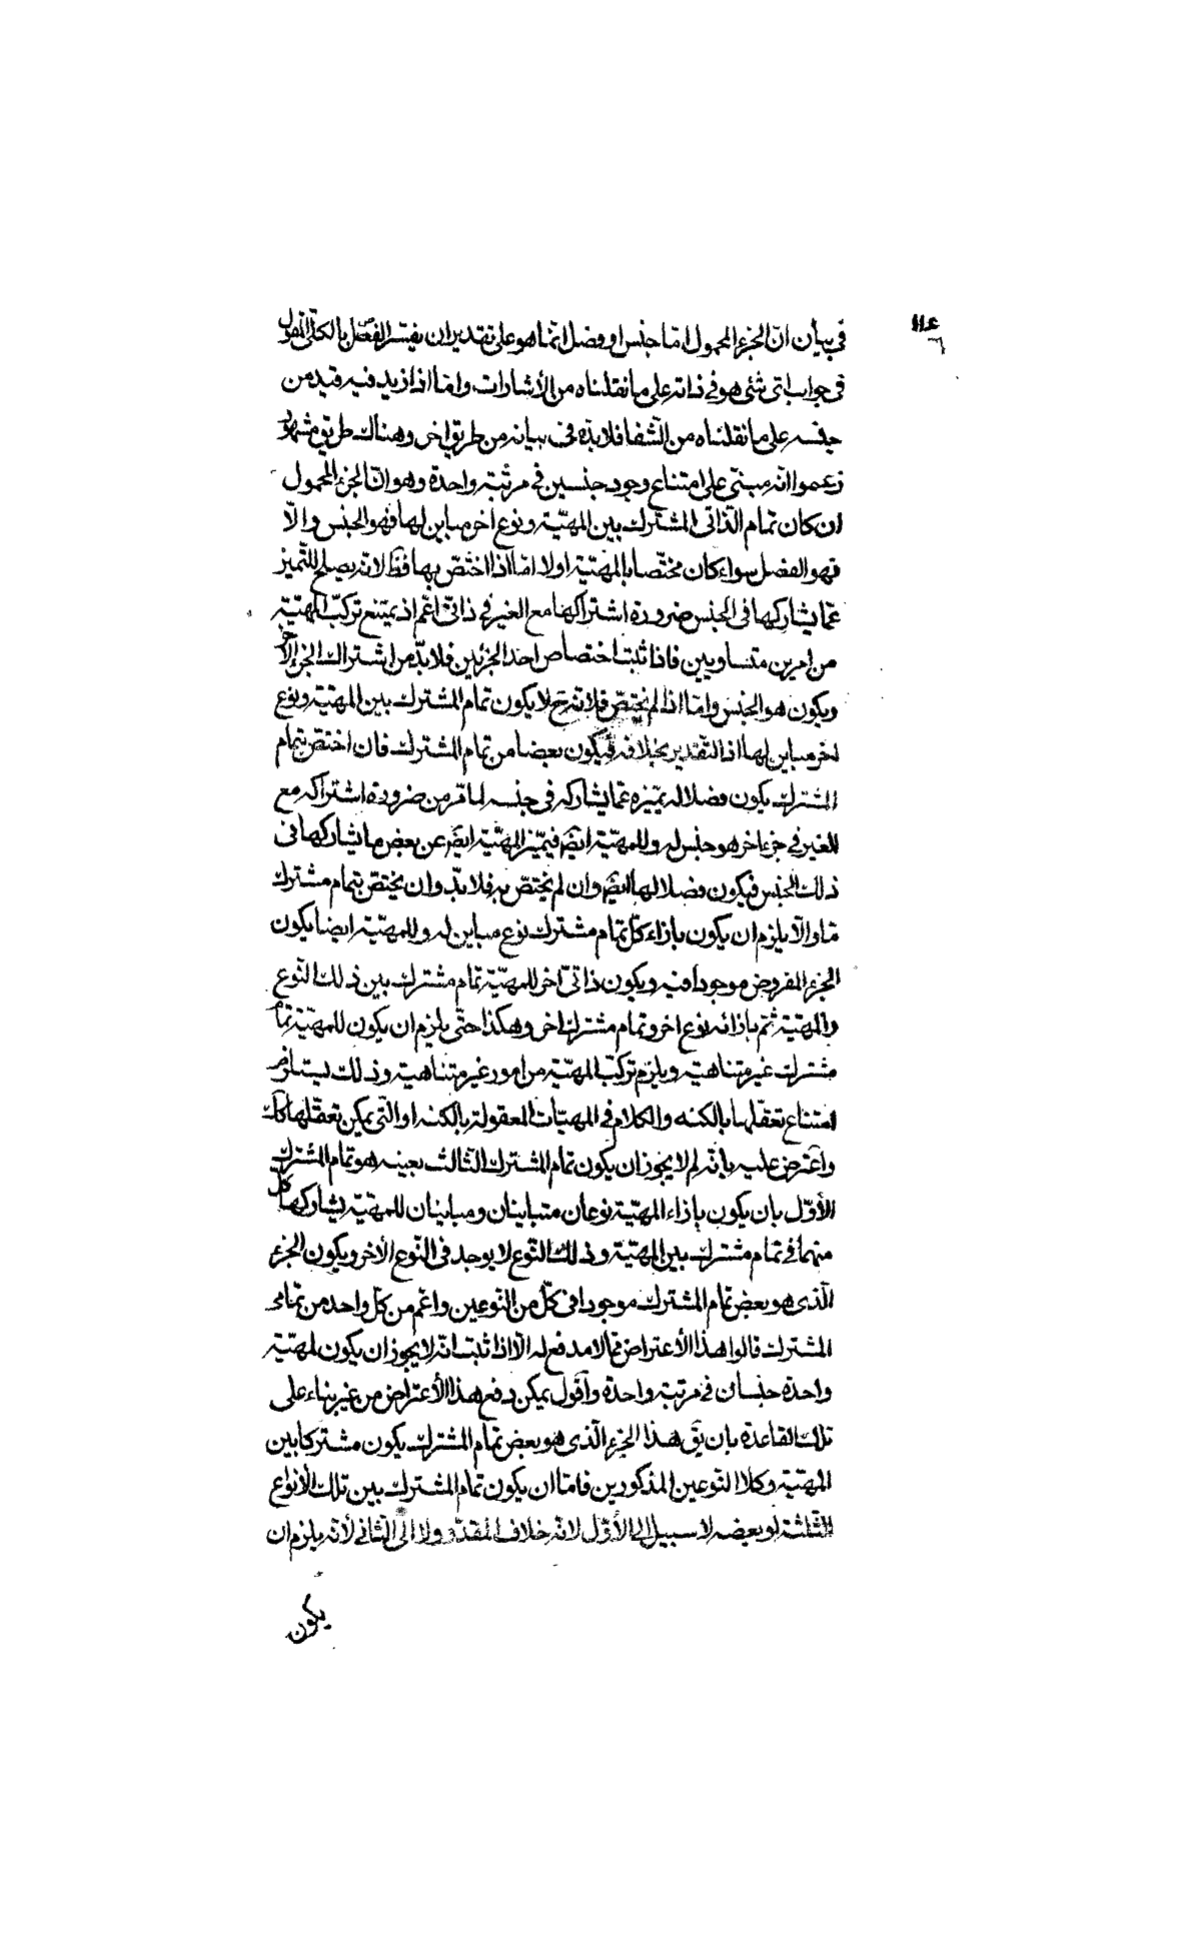 ١١٤
٦
في بيان انّ الجزء المحمول امّا جنس او فصل انّما هو على تقدير ان يفسّر الفصل بالكلّي المقول
في جواب ايّ شئ هو في ذاته على ما نقلناه من الأشارات وامّا اذا زيد فيه قيد من
جنسه على ما نقلناه من الشّفا فلا بدّ في بيانه من طريق اخر وهناك طريق مشهور
زعموا انّه مبنيّ على امتناع وجود جنسين في مرتبة واحدة وهو انّ الجزء المحمول
ان كان تمام الذّاتي المشترك بين المهيّة ونوع اخر مباين لها فهو الجنس والّا
فهو الفصل سواء كان مختصّا بالمهيّة او لا امّا اذا اختصّ بها فظ لانّه يصلح للتّميز
عمّا يشاركها في الجنس ضرورة اشتراكها مع الغير في ذاتيّ اعمّ اذ يمتنع تركّب المهيّة
من امرين متساويين فاذا ثبت اختصاص احد الجزئين فلا بدّ من اشتراك الجزء الآخر
ويكون هو الجنس وامّا اذا لم يختصّ فلانّه ح لا يكون تمام المشترك بين المهيّة ونوع
اخر مباين لها اذ التقدير بخلافه فيكون بعضا من تمام المشترك فان اختصّ بتمام
المشترك يكون فصلا له يميّزه عمّا يشاركه في جنسه لما مرّ من ضرورة اشتراكه مع
الغير في جزء اخر هو جنس له وللمهيّة ايضَ فيميّز المهيّة ايضَ عن بعض ما يشاركها في
ذلك الجنس فيكون فصلا لها ايضَ وان لم يختصّ به فلا بدّ وان يختصّ بتمام مشترك
مّا والّا يلزم ان يكون بازاء كلّ تمام مشترك نوع مباين له وللمهيّة ايضا يكون
الجزء المفروض موجودا فيه ويكون ذاتيّ اخر للمهيّة تمام مشترك بين ذلك النّوع
والمهيّة ثمّ بازائه نوع اخر وتمام مشترك اخر وهكذا حتّى يلزم ان يكون للمهيّة تمام
مشترك غير متناهية ويلزم تركّب المهيّة من امور غير متناهية وذلك يستلزم
امتناع تعقّلها بالكنه والكلام في المهيّات المعقولة بالكنه او الّتي يمكن تعقّلها كك
واعترض عليه بانّه لم لا يجوز ان يكون تمام المشترك الثّالث بعينه هو تمام المشترك
الأوّل بان يكون بازاء المهيّة نوعان متباينان ومباينان للمهيّة يشاركها كلّ
منهما في تمام مشترك بين المهيّة وذلك النّوع لا يوجد في النّوع الأخر ويكون الجزء
الّذي هو بعض تمام المشترك موجودا في كلّ من النّوعين واعمّ من كلّ واحد من تمامي
المشترك قالوا هذا الأعتراض ممّا لا مدفع له الّا اذا ثبت انّه لا يجوز ان يكون لمهيّة
واحدة جنسان في مرتبة واحدة واقول يمكن دفع هذا الأعتراض من غير بناء على
تلك القاعدة بان يق هذا الجزء الّذي هو بعض تمام المشترك يكون مشتركا بين
المهيّة وكلا النّوعين المذكورين فامّا ان يكون تمام المشترك بين تلك الأنواع
الثّلثة او بعضه لا سبيل الى الأوّل لانّه خلاف المقدّر ولا الى الثّاني لأنّه يلزم ان
يكون